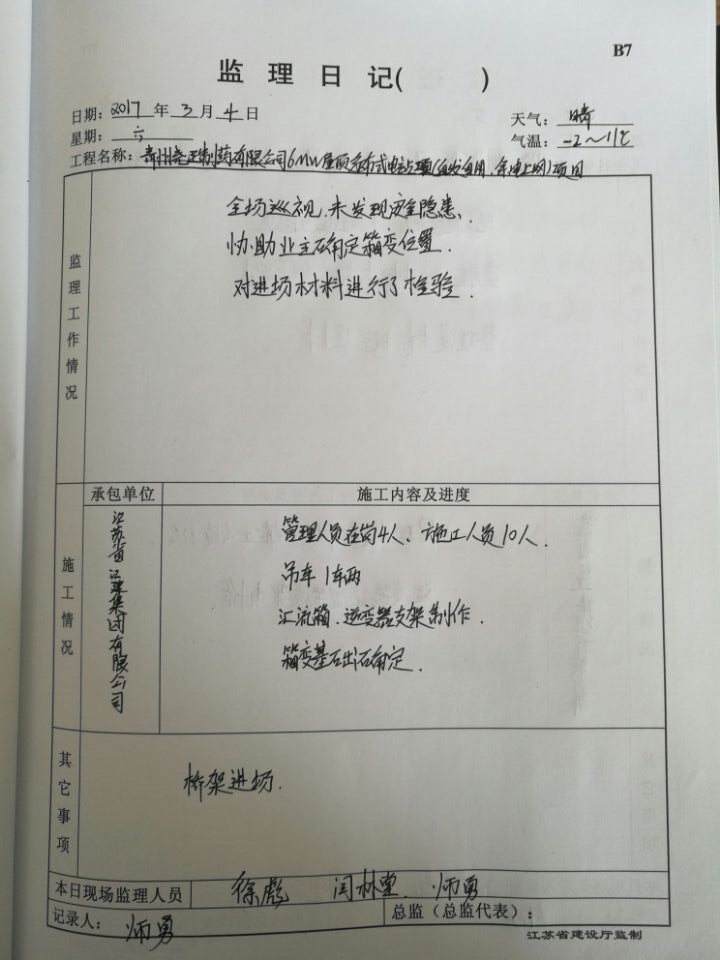 B7
监理日记( )
日期: 2017 年 3 月 4 日
天气: 晴
星期: 六
气温: -2~11℃
工程名称: 青州尧王制药有限公司6MW屋顶分布式电站项(自发自用、余电上网)项目
监理工作情况
全场巡视,未发现安全隐患、
协助业主确定箱变位置.
对进场材料进行了检验.
施工情况
承包单位
施工内容及进度
江苏省江建集团有限公司
管理人员在岗4人、施工人员10人.
吊车 1车两
汇流箱、逆变器支架制作.
确定.
其它事项
桥架进场.
本日现场监理人员
徐彪 闫林堂 师勇
记录人: 师勇
总监(总监代表):
江苏省建设厅监制